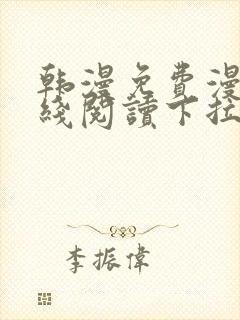 韩漫免費漫
綫閱讀下拉
李振偉